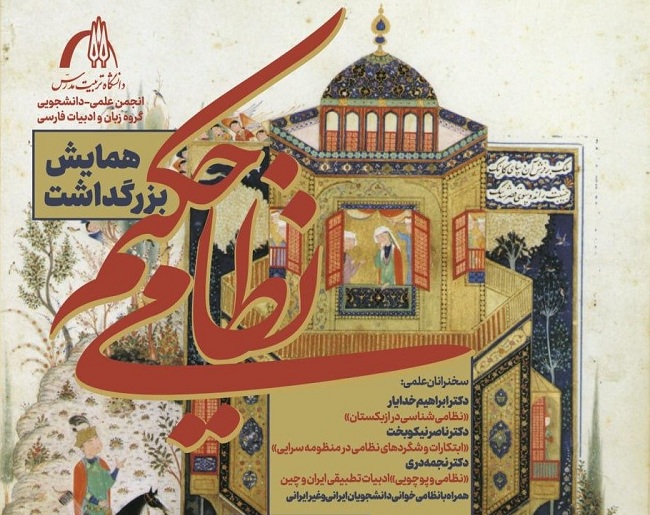 دانشگاه تربیت مدرس
انجمن علمی-دانشجویی
گروه زبان و ادبیات فارسی
همایش
بزرگداشت
حکیم
نظامی
سخنرانان علمی:
دکتر ابراهیم خدایار
«نظامی‌شناسی در ازبکستان»
دکتر ناصر نیکوبخت
«ابتکارات و شگردهای نظامی در منظومه سرایی»
دکتر نجمه دری
«نظامی و پوچویی» ادبیات تطبیقی ایران و چین
همراه با نظامی خوانی دانشجویان ایرانی و غیر ایرانی